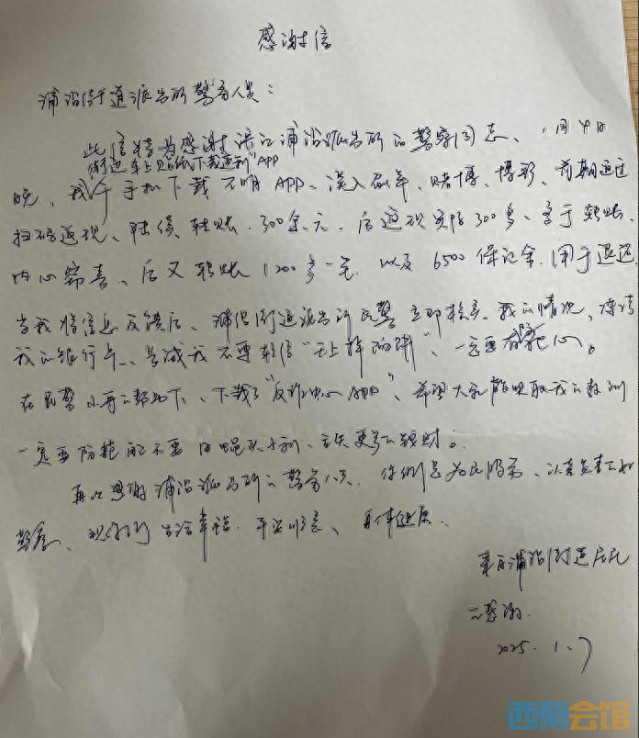 感谢信
浦沿街道派出所警务人员：
此信特为感谢滨江浦沿派出所的警察同志、1月4日
街边车上贴纸下载返利APP
晚，我于手机下载不明APP、误入刷单、赌博、博彩、前期通过
扫码返现、陆续转账.300余元.后返现实际300多、至于转账、
内心窃喜、后又转账1200多一笔.以及6500保证金.用于返还
当我将信息反馈后、浦沿街道派出所民警立即核实.我的情况，冻结
我的银行卡、告诫我不要轻信“天上掉的饼”、一定要
在民警的帮助下、下载了“反诈中心APP”、希望大家能吸取我的教训
一定要防范而不要因蝇头小利、丢失更多的钱财。
再次感谢浦沿派出所的警务人员.你们是为民服务、认真负责的
警察、祝你们生活幸福.平安顺意、身体健康.
来自浦沿街道居民
的感谢.
2025.1.7
西祠会馆